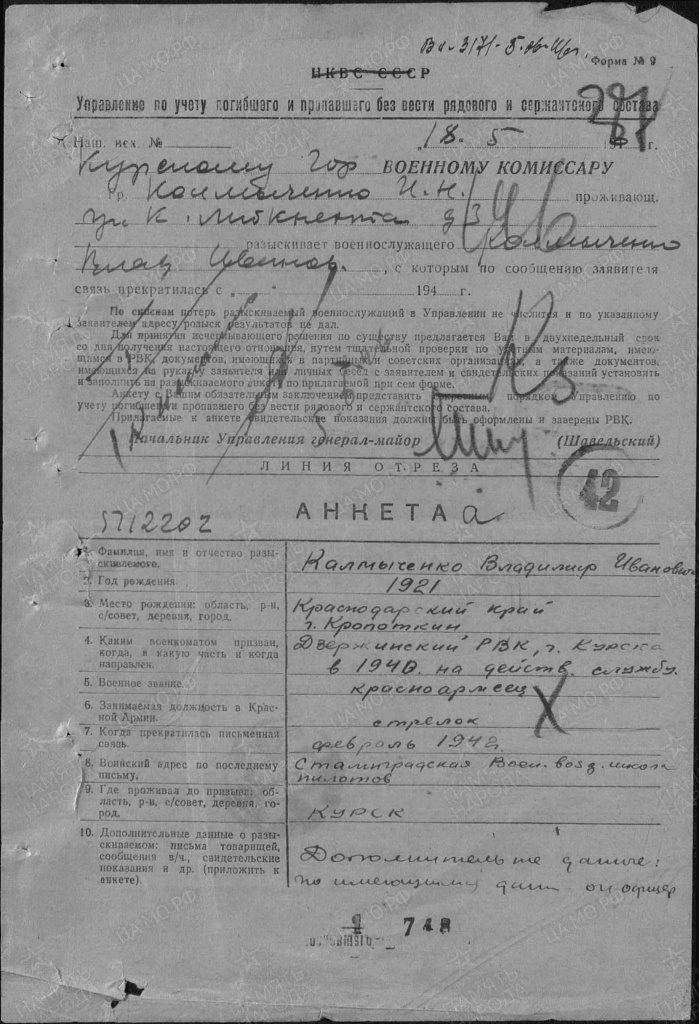 Форма № 9
НКВС СССР
Управление по учету погибшего и пропавшего без вести рядового и сержантского состава
Наш. исх. № „18. 5 194 г.
Курскому Гор ВОЕННОМУ КОМИССАРУ
Гр. Калмыченко И. Н. проживающ.
ул К. Либкнехта д 34
разыскивает военнослужащего Калмыченко
Влад Иванов., с которым по сообщению заявителя
связь прекратилась с 194 г.
По спискам потерь разыскиваемый военнослужащий в Управлении не числится и по указанному
заявителем адресу розыск результатов не дал.
Для принятия исчерпывающего решения по существу предлагается Вам в двухнедельный срок
со дня получения настоящего отношения, путем тщательной проверки по учетным материалам, имею-
щимся в РВК, документов, имеющихся в партийных и советских организациях, а также документов,
имеющихся на руках заявителя или личных бесед с заявителем и свидетельских показаний установить
и заполнить на разыскиваемого анкету по прилагаемой при сем форме.
Анкету с Вашим обязательным заключением представить секретным порядком Управлению по
учету погибшего и пропавшего без вести рядового и сержантского состава.
Прилагаемые к анкете свидетельские показания должны быть оформлены и заверены РВК.
Начальник Управления генерал-майор (Шавельский)
ЛИНИЯ ОТРЕЗА
42
АНКЕТА а
5712202
1. Фамилия, имя и отчество разы-
скиваемого. Калмыченко Владимир Иванович
2. Год рождения 1921
3. Место рождения: область, р-н, Краснодарский край
с/совет, деревня, город. г. Кропоткин
4. Каким военкоматом призван, Дзержинский РВК, г. Курска
когда, в какую часть и когда в 1940. на действ. службу.
направлен.
5. Военное звание. красноармеец
6. Занимаемая должность в Крас-
ной Армии. стрелок
7. Когда прекратилась письменная
связь. февраль 1942г.
8. Воинский адрес по последнему Сталинградская Воен. возд. школа
письму. пилотов
9. Где проживал до призыва: об-
ласть, р-н, с/совет, деревня, го-
род. КУРСК
10. Дополнительные данные о разы-
скиваемом: письма товарищей,
сообщения в/ч., свидетельские
показания и др. (приложить к
анкете).
Дополнительные данные:
по имеющимся дан он офицер
748